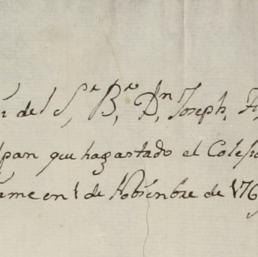 del S.r B.r D.n Joseph,
pan que ha gastado el Coleg
en 1 de Nobienbre de 176